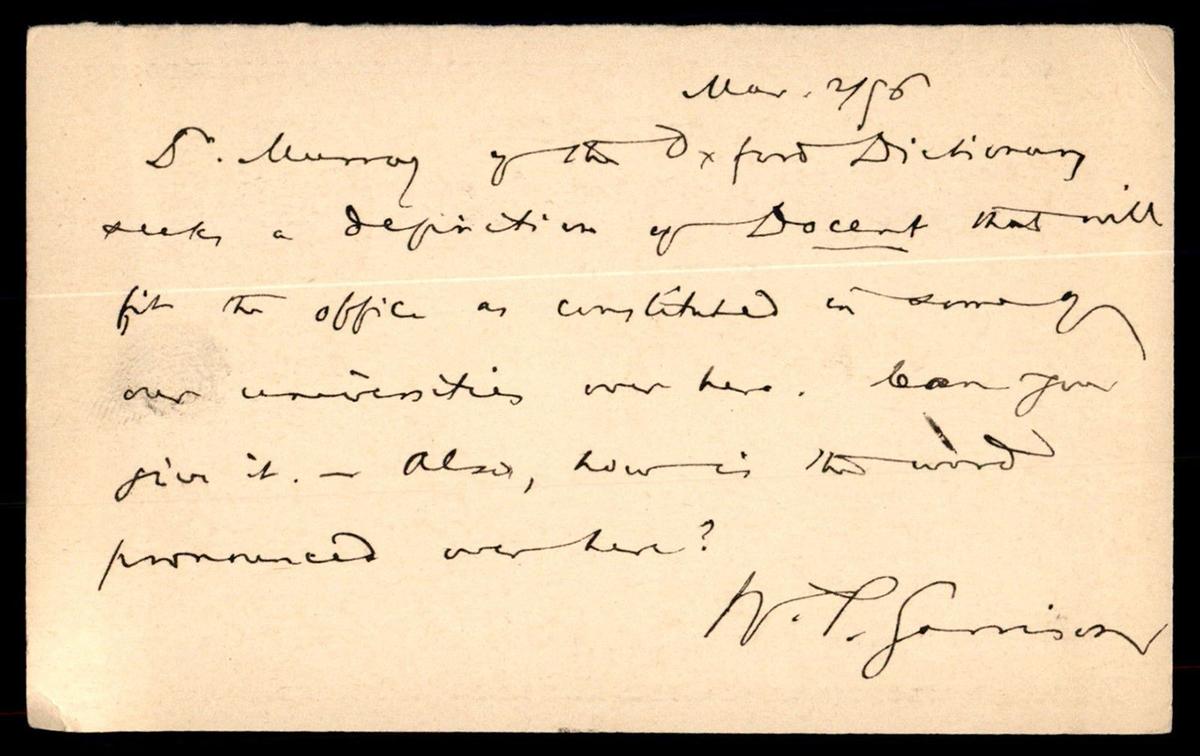 Mar. 2/96
Dr. Murray of the Oxford Dictionary
seeks a definition of Docent that will
fit the office as constituted in some of
our universities over here. Can you
give it. — Also, how is the word
pronounced over here?
W. P. Garrison